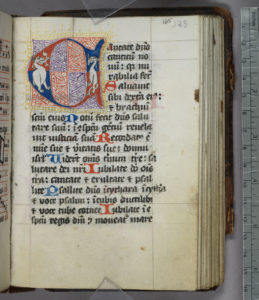 125
Cantate dn̄o
canticū no
uū: q̄ mi
rabilia fec̄
Saluauit
sibi dext̄a ei9:
et brachiū
scm̄ eius Notū fecit dn̄s salu
tare suū: ī 9spc̄u gen̄ reuela
uit iusticiā suā Recordat9 ē
mie sue et ūitatis sue: domui
isrl̄ Uiderūt om̄s t̄mini t̄re: sa
lutare dei nri Iubilate dō ois
t̄ra: cantate et exultate et psal
lite Psallite dn̄o ī cythara ī cyth̄a
et voce psalmi: ī tubis ductilib9
et voce tube cornee Iubilate ī 9
spc̄u regis dn̄i: moueat̄ mare